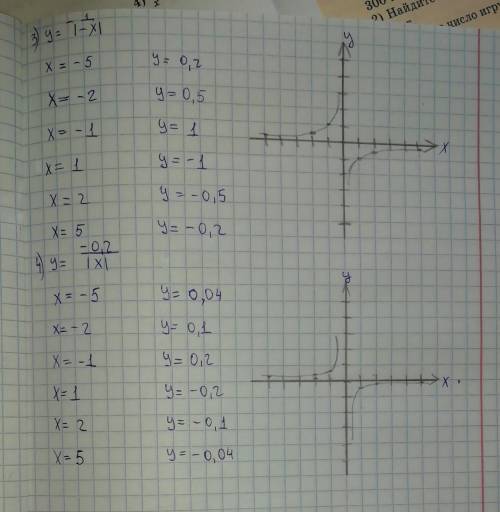 300
2) Найдите
число игр
3) y = 1/|-x|
x = -5 y = 0,2
x = -2 y = 0,5
x = -1 y = 1
x = 1 y = -1
x = 2 y = -0,5
x = 5 y = -0,2
y
x
4) y = -0,2/|x|
x = -5 y = 0,04
x = -2 y = 0,1
x = -1 y = 0,2
x = 1 y = -0,2
x = 2 y = -0,1
x = 5 y = -0,04
y
x